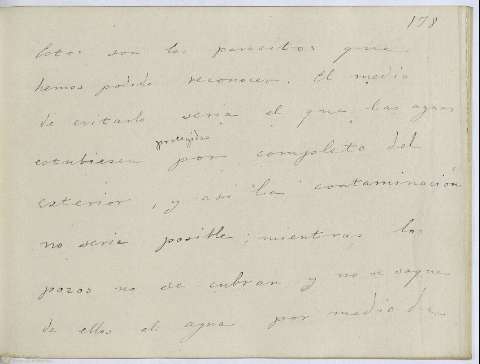 178
Estos son los parasitos que
hemos podido reconocer. El medio
de evitarlo seria el que las aguas
estubiesen protegidas por completo del
exterior, y asi la contaminación
no seria posible; mientras los
pozos no se cubran y no se saque
de ellos el agua por medio de